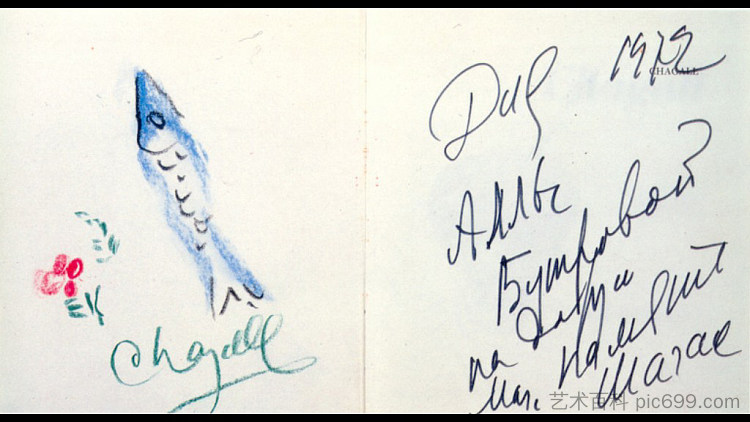 Chagall
1972
CHAGALL
Для
Аллы
Бутровой
на память
Марк Шагал
艺术百科 pic699.com